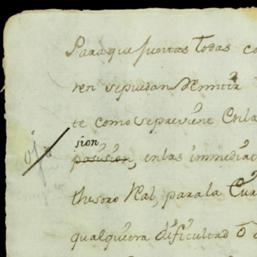 Para que juntas todas co
ren se puedan Remitir
te como se previene en la
sion
posision, en las immediat
thesoro Real, para la Cua
qualquiera dificultad ô d